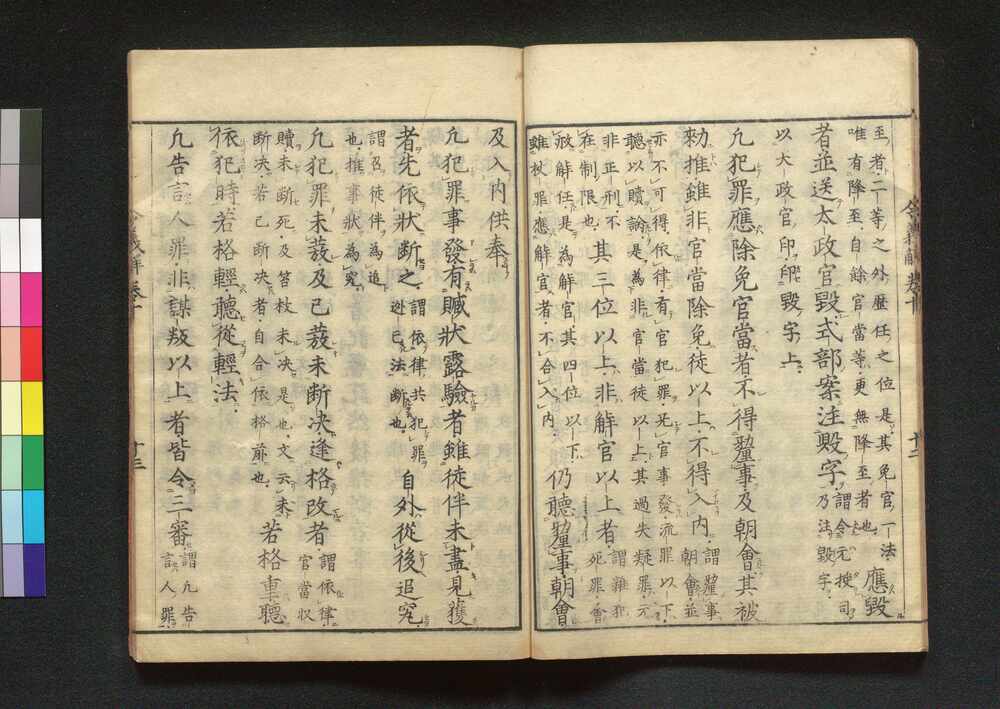 至者二等之外歴任之位是其免官一法
唯有降至自餘官當等更無降至者也 應毀
者並送太政官毀式部案注毀字 謂令元授司
乃法毀字
以大政官印印毀字上
凡犯罪應除免官當者不得釐事及朝會其被
勅推雖非官當除免徒以上不得入内 謂釐事
朝會並
亦不可得依律有官犯罪无官事發流罪以下
聴以贖論是為非官當徒以上其過失疑罪元
非正刑不
在制限也 其三位以上非解官以上者 謂雜犯
死罪會
赦解任是為解官其四位以下 仍聴釐事朝會
雖杖罪應解官者不合入内
及入内供奉
凡犯罪事發有贓状露驗者雖徒伴未盡見獲
者先依状断之 謂依律共犯罪
逃亡法断也 自外從後追究
謂召徒伴為追
也推事状為究
凡犯罪未發及已發未断决逢格改者 謂依律
官當収
贖未断死及笞杖未决是也文云未
断决若已断决者自合依格前也 若格重聴
依犯時若格輕聴從輕法
凡告言人罪非謀叛以上者皆令三審 謂凡告
言人罪
令義解 巻十
十二
十三